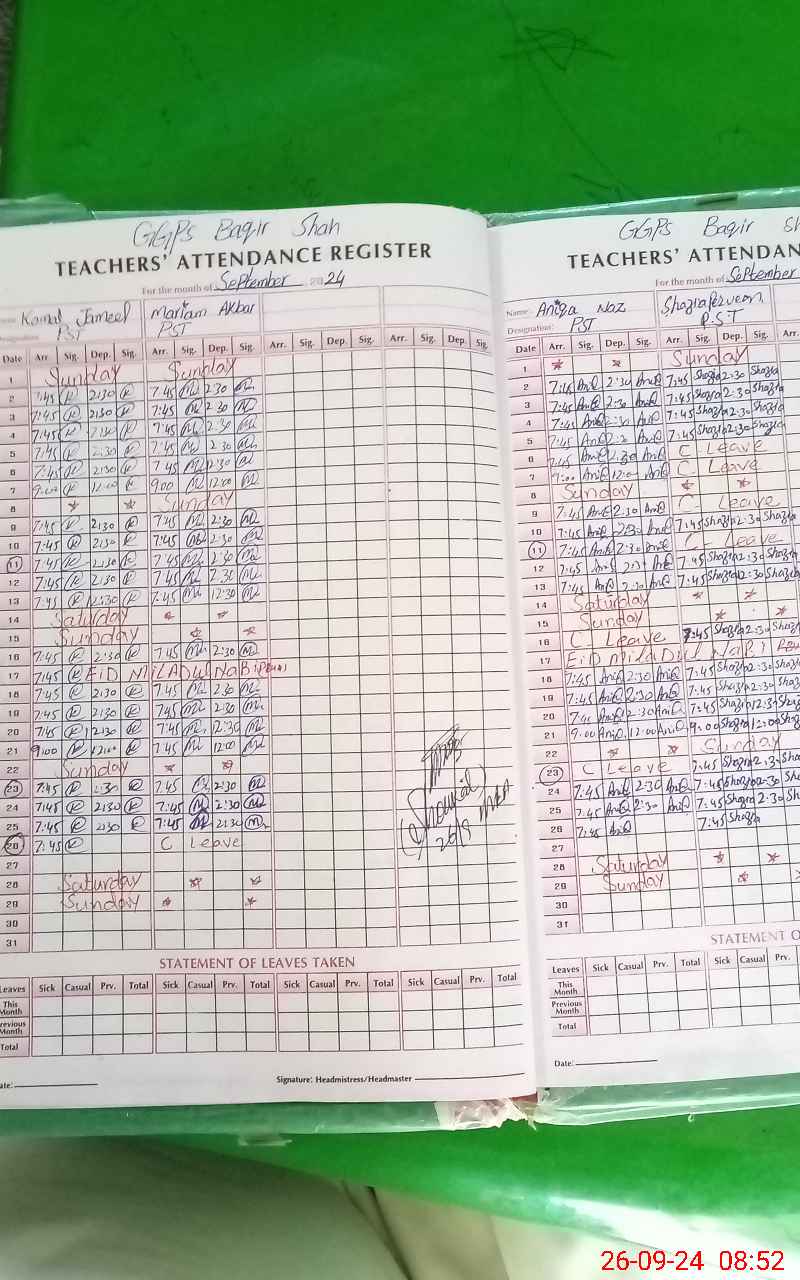 GGPS Baqir Shah
TEACHERS' ATTENDANCE REGISTER
For the month of September 2024
Komal Jameel Mariam Akbar
PST PST
Date Arr. Sig. Dep. Sig. Arr. Sig. Dep. Sig. Arr. Sig. Dep. Sig. Arr. Sig. Dep. Sig.
1 Sunday Sunday
2 7:45 K 2:30 K 7:45 M 2:30 M
3 7:45 K 2:30 K 7:45 M 2:30 M
4 7:45 K 2:30 K 7:45 M 2:30 M
5 7:45 K 2:30 K 7:45 M 2:30 M
6 7:45 K 2:30 K 7:45 M 12:30 M
7 9:00 K 12:00 K 9:00 M 12:00 M
8 * * Sunday
9 7:45 K 2:30 K 7:45 M 2:30 M
10 7:45 K 2:30 K 7:45 M 2:30 M
11 7:45 K 2:30 K 7:45 M 2:30 M
12 7:45 K 2:30 K 7:45 M 2:30 M
13 7:45 K 12:30 K 7:45 M 12:30 M
14 Saturday * *
15 Sunday * *
16 7:45 K 2:30 K 7:45 M 2:30 M
17 7:45 EiD MiLADul NaBi
18 7:45 K 2:30 K 7:45 M 2:30 M
19 7:45 K 2:30 K 7:45 M 2:30 M
20 7:45 K 12:30 K 7:45 M 12:30 M
21 9:00 K 12:00 K 7:45 M 12:00 M
22 Sunday * *
23 7:45 K 2:30 K 7:45 2:30 M
24 7:45 K 2:30 K 7:45 M 2:30 M
25 7:45 K 2:30 K 7:45 M 2:30 M
26 7:45 K C Leave
27
28 Saturday * *
29 Sunday * *
30
31
26/9
STATEMENT OF LEAVES TAKEN
Leaves Sick Casual Prv. Total Sick Casual Prv. Total Sick Casual Prv. Total Sick Casual Prv. Total
This Month
Previous Month
Total
Signature: Headmistress/Headmaster
GGPS Baqir Sh
TEACHERS' ATTENDAN
For the month of September
Name Aniqa Naz Shazia Perveen
Designation: PST P.S.T
Date Arr. Sig. Dep. Sig. Arr. Sig. Dep. Sig.
1 * * Sunday
2 7:45 AniQ 2:30 AniQ 7:45 Shazia 2:30 Shazia
3 7:45 AniQ 2:30 AniQ 7:45 Shazia 2:30 Shazia
4 7:45 AniQ 2:30 AniQ 7:45 Shazia 2:30 Shazia
5 7:45 AniQ 2:30 AniQ 7:45 Shazia 2:30 Shazia
6 7:45 AniQ 12:30 AniQ C Leave
7 9:00 AniQ 12:00 AniQ C Leave
8 Sunday * *
9 7:45 AniQ 2:30 AniQ C Leave
10 7:45 AniQ 2:30 AniQ 7:45 Shazia 2:30 Shazia
11 7:45 AniQ 2:30 AniQ C Leave
12 7:45 AniQ 2:30 AniQ 7:45 Shazia 2:30 Shazia
13 7:45 AniQ 12:30 AniQ 7:45 Shazia 12:30 Shazia
14 Saturday * *
15 Sunday * *
16 C Leave 7:45 Shazia 2:30 Shazia
17 EiD MiLaDul NaBi
18 7:45 AniQ 2:30 AniQ 7:45 Shazia 2:30 Shazia
19 7:45 AniQ 2:30 AniQ 7:45 Shazia 2:30 Shazia
20 7:45 AniQ 12:30 AniQ 7:45 Shazia 12:30 Shazia
21 9:00 AniQ 12:00 AniQ 9:00 Shazia 12:00 Shazia
22 * * Sunday
23 C Leave 7:45 Shazia 2:30 Shazia
24 7:45 AniQ 2:30 AniQ 7:45 Shazia 2:30 Shazia
25 7:45 AniQ 2:30 AniQ 7:45 Shazia 2:30 Shazia
26 7:45 AniQ 7:45 Shazia
27
28 Saturday * *
29 Sunday *
30
31
STATEMENT O
Leaves Sick Casual Prv. Total Sick Casual Prv.
This Month
Previous Month
Total
Date:
26-09-24 08:52